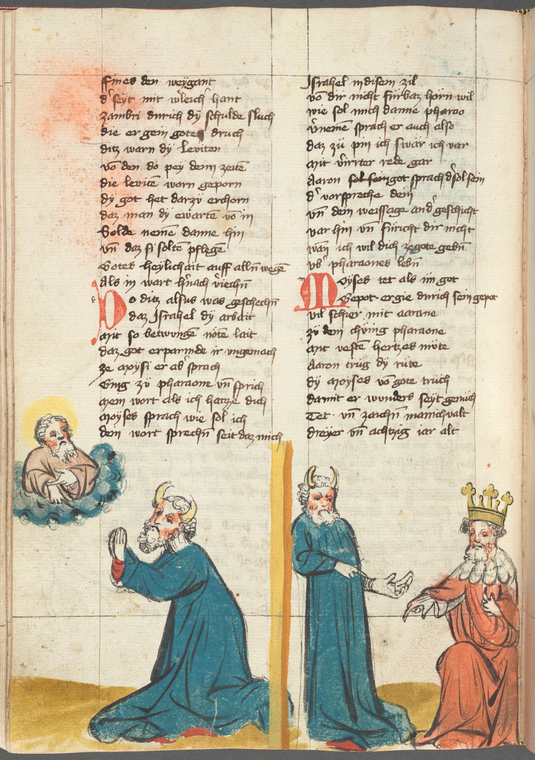 fines den weygant
d' seyt mit wleich hant
Zambri durch dy schulde sluch
die er gein gotes druch
ditz warn dy leviten
vo den do pey dem zeite
die levite worn geporn
dy got het darzu erchorn
daz man dy ewarte vo in
Solde neme danne hin
vn daz si solte pflege
Gotes heylichait auff alln wege
als in wart hinach
Do ditz alsus was geschechn
daz Israhel dy arbait
mit so betwunge note lait
daz got erparmde ir ungemach
ze moysi er as sprach
Ging zu pharaone vn sprich
mein wort als ich hatze dich
moyses sprach wie sol ich
dein wort sprechn seit daz mich
Israhel in disem zil
vo dir nicht furbaz horn wil
wie sol mich danne pharao
v'neme sprach er auch also
daz zu pin ich swar ich var
mit v'irrter rede gar
Aaron sol sein got sprach d' sol sein
d' vorspreche dein
vn dein weissage and' geschicht
var hin vn furicht dir nicht
wan ich wil dich ze gote gebn
vb' pharaones lebn
Moyses tet als im got
Gepot er gie durch sein gepot
vil schier mit aarane
zu dem chunig pharaone
mit veste hertzes mute
Aaron trug dy rute
dy moyses vo gote truch
damit er wunders seyt genuch
Tet vn zaichn manichvalt
dreyer vn achtzig iar alt